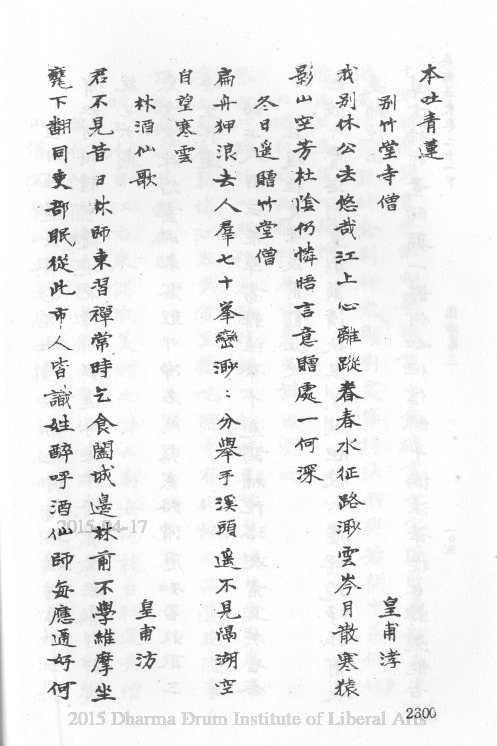 本吐青蓮
別竹堂寺僧 皇甫涍
我別休公去悠哉江上心離蹤春春水征路渺雲岑月散寒猿
影山空芳杜陰仍憐晤言意贈處一何深
冬日遥贈竹堂僧
扁舟狎浪去人羣七十峯巒渺：分舉手溪頭遥不見隔湖空
自望寒雲
林酒仙歌 皇甫汸
君不見昔日林師東習禪常時乞食闔城邊林前不學維摩坐
甕下翻同吏部眠從此市人皆識姓醉呼酒仙師每應通好何
2300
2015-04-17
2015 Dharma Drum Institute of Liberal Arts